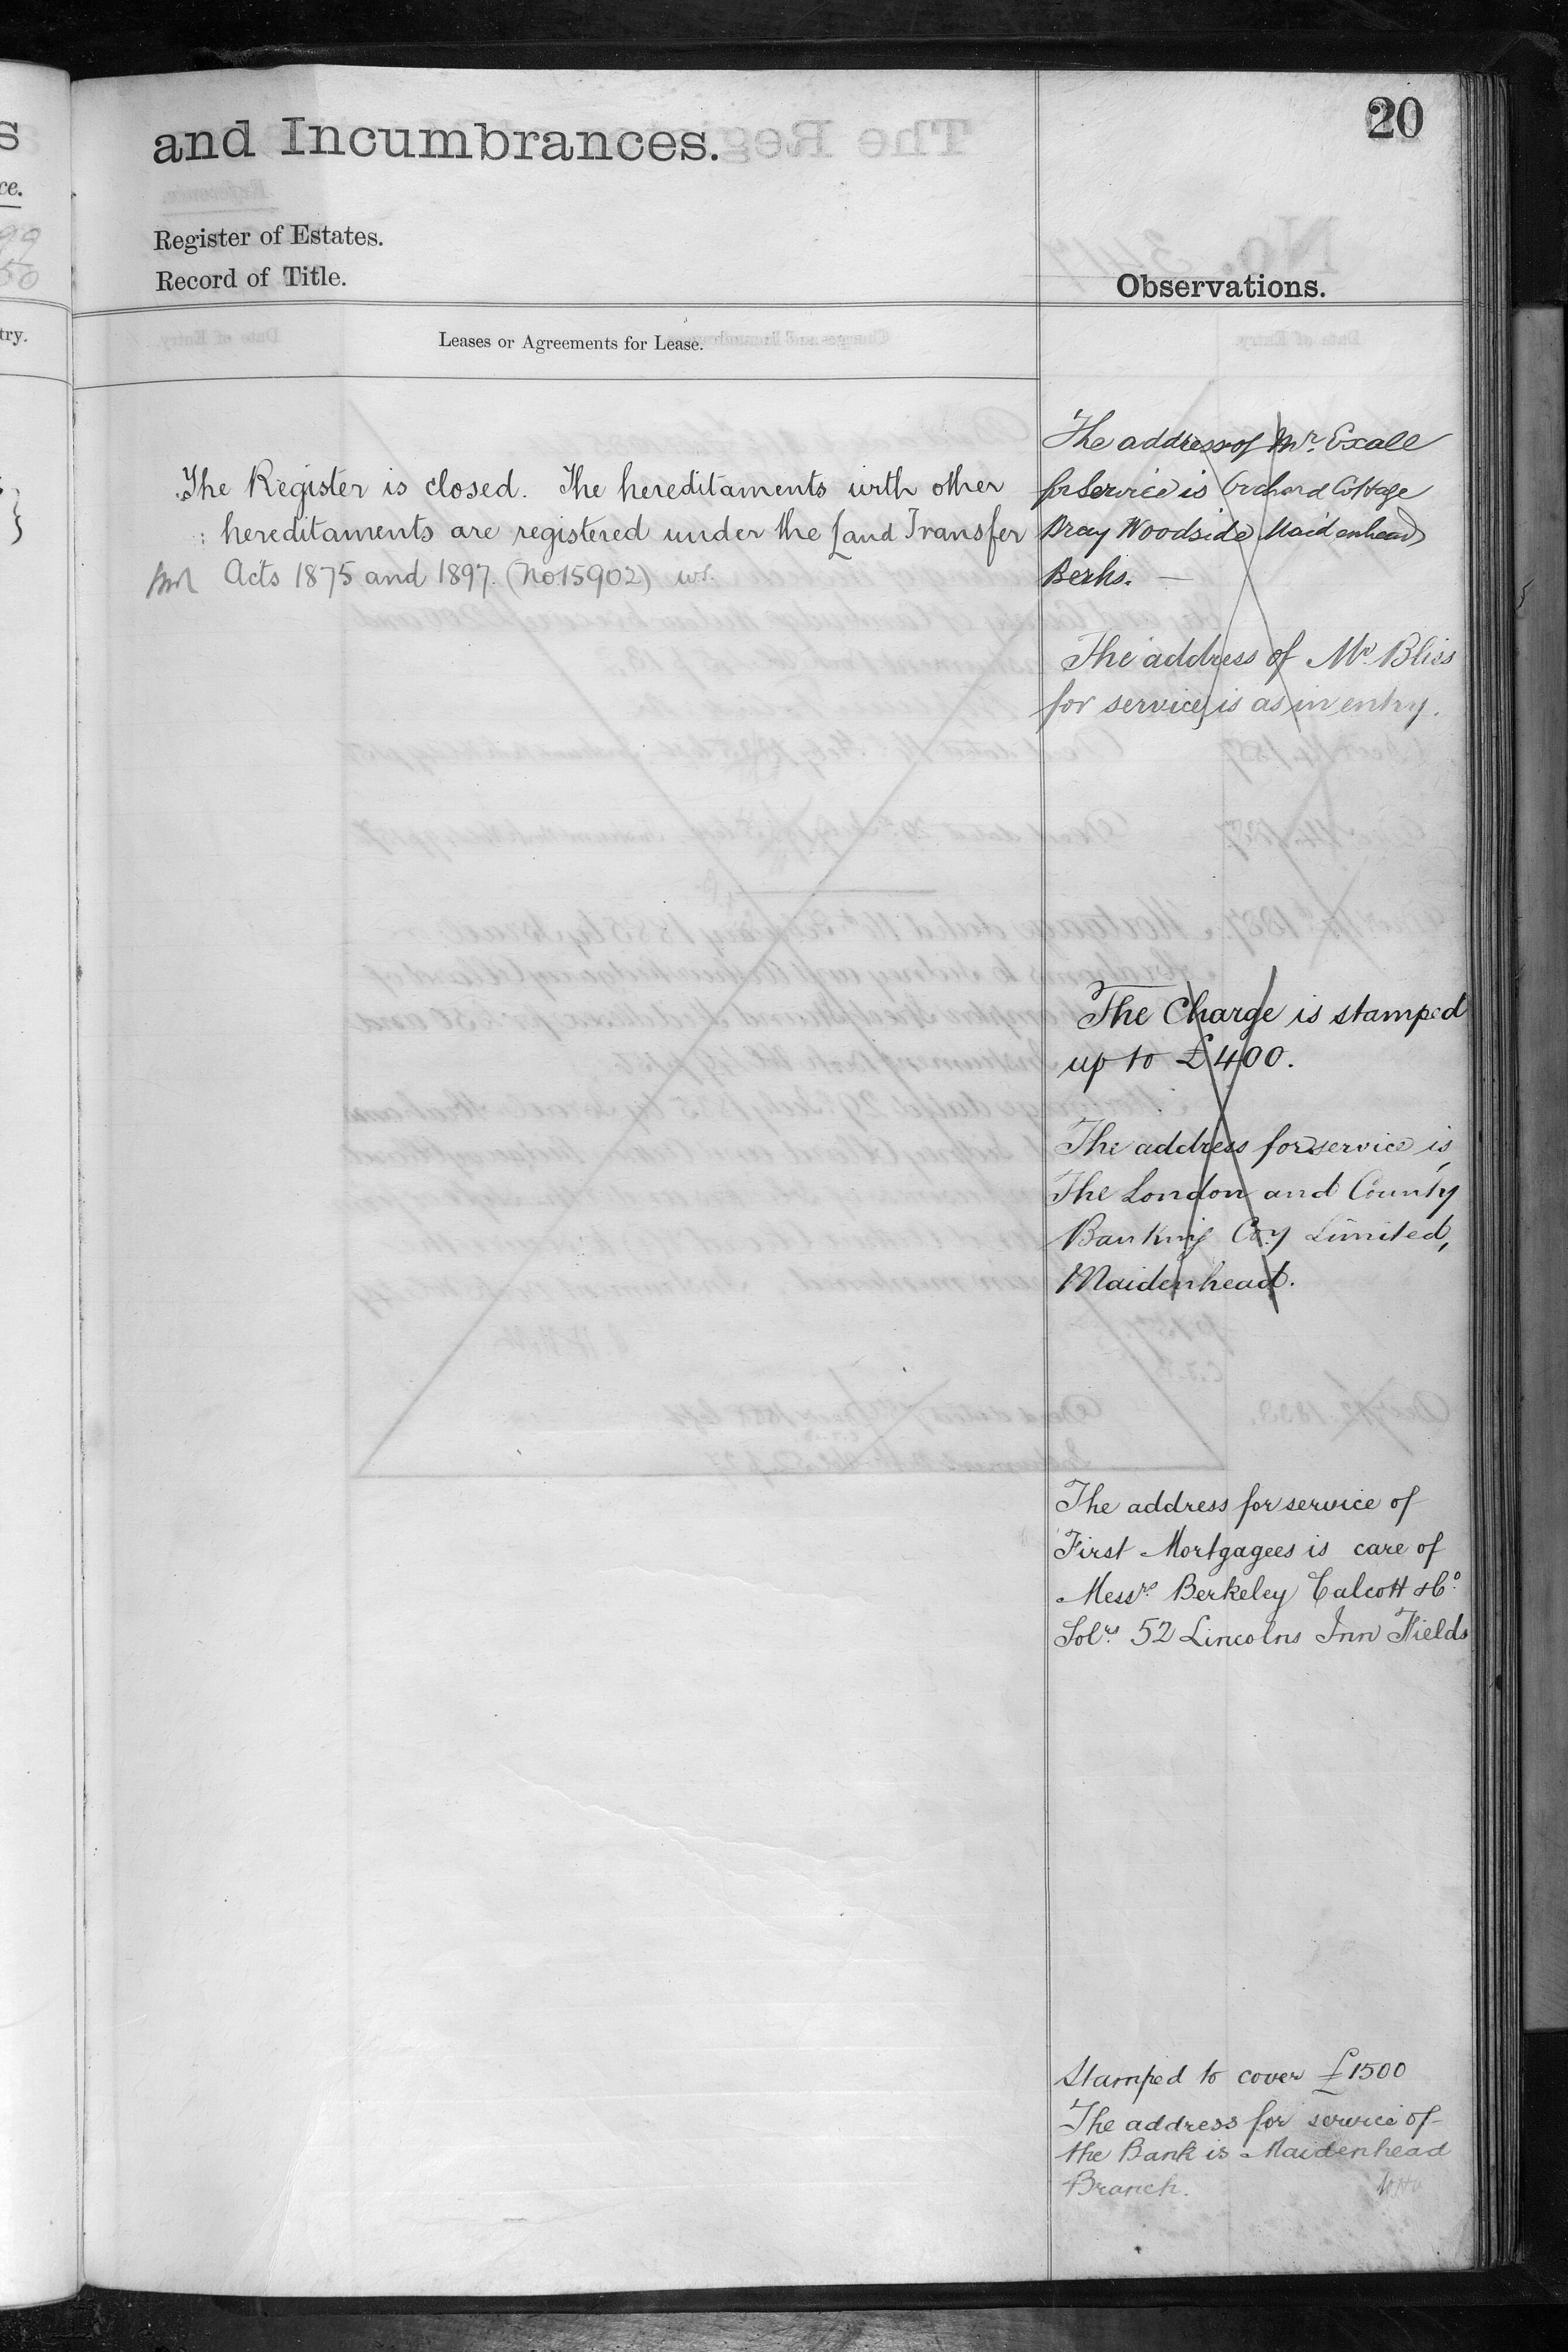 and Incumbrances.
20
Register of Estates.
Record of Title.
Observations.
Leases or Agreements for Lease.
The Register is closed. The hereditaments with other
hereditaments are registered under the Land Transfer
Acts 1875 and 1897. (No 15902)
The address of Mr. Exall
for Service is Orchard Cottage
Bray Woodside Maidenhead
Berks. —
The address of Mr. Bliss
for service, is as in entry.
The Charge is stamped
up to £400.
The address for service is
The London and County
Banking Coy Limited,
Maidenhead.
The address for service of
First Mortgagees is care of
Messrs. Berkeley Calcott & Co.
Solrs. 52 Lincolns Inn Fields
Stamped to cover £1500
The address for service of
the Bank is Maidenhead
Branch.